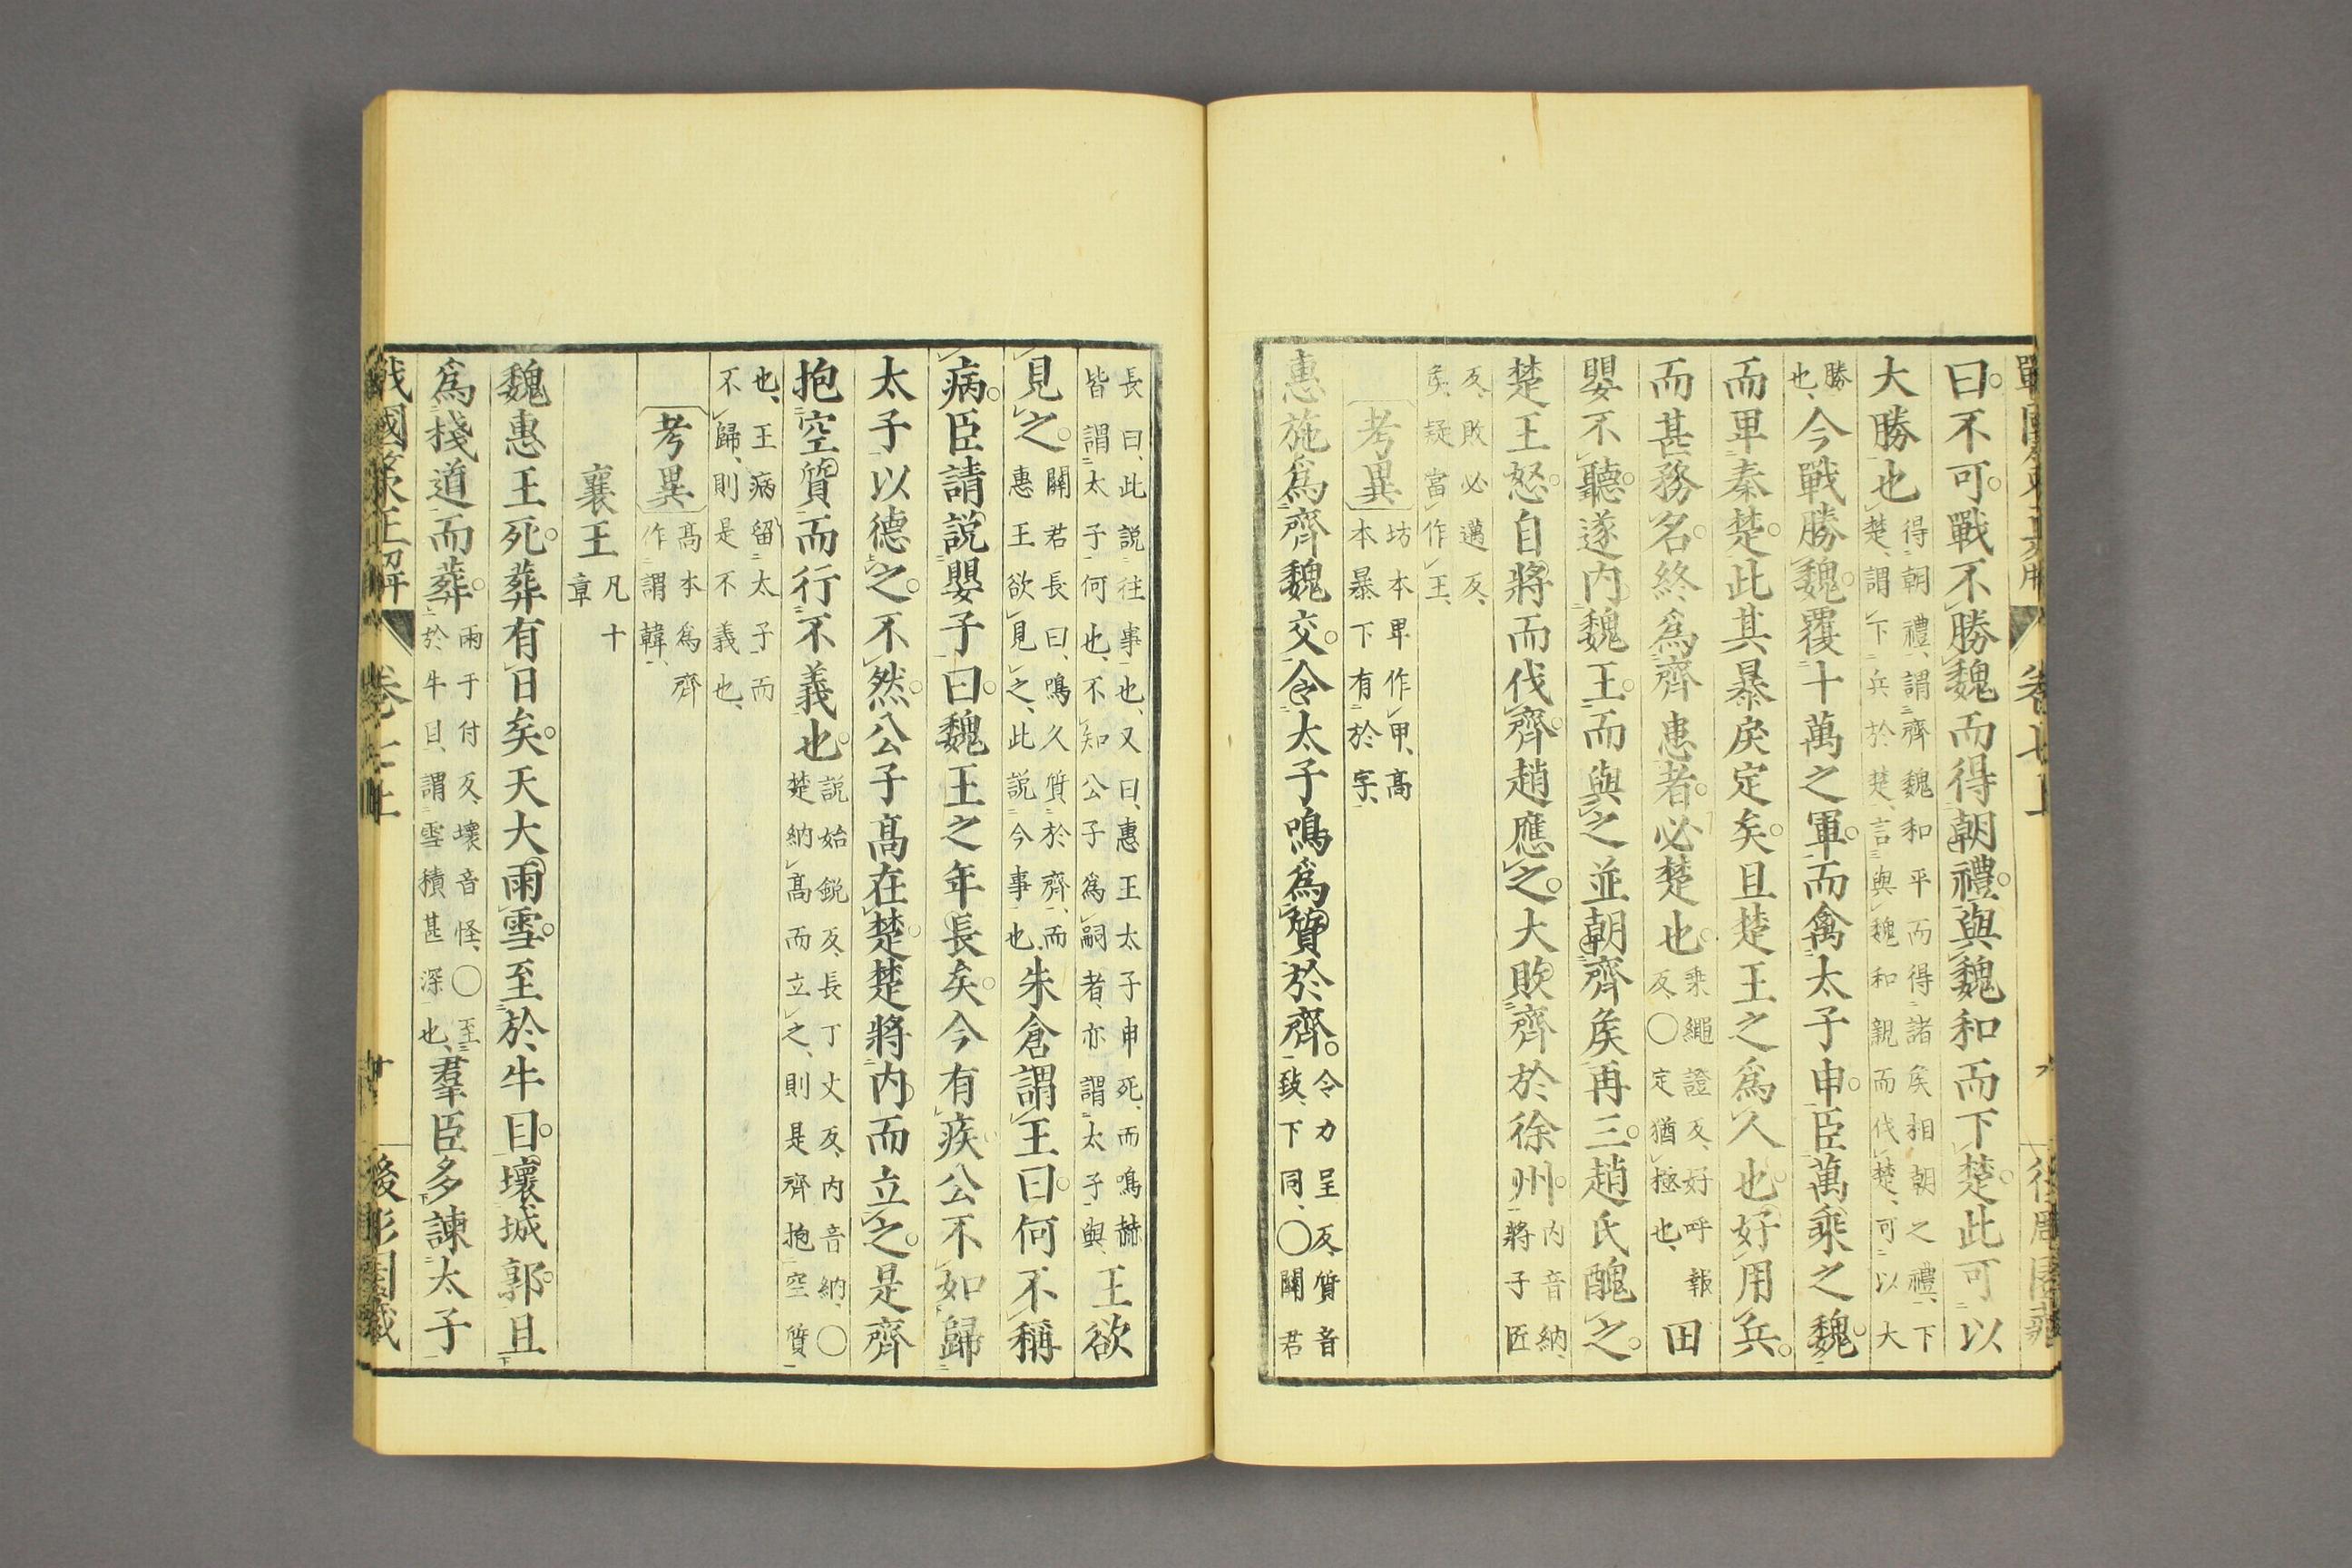 曰不可戰不勝魏而得朝禮與魏和而下楚此可以
大勝也得朝禮謂齊魏和平而得諸矦相朝之禮下楚謂下兵於楚言與魏和親而伐楚可以大
勝也今戰勝魏覆十萬之軍而禽太子申臣萬乘之魏
而卑秦楚此其暴戾定矣且楚王之爲人也好用兵
而甚務名終爲齊患者必楚也乘繩證反好呼報反○定猶極也田
嬰不聽遂内魏王而與之並朝齊矦再三趙氏醜之
楚王怒自將而伐齊趙應之大敗齊於徐州内音納將子匠
反敗必邁反矦疑當作王
考異坊本卑作甲高本暴下有於字
惠施爲齊魏交令太子鳴爲質於齊令力呈反質音致下同○闗君
長曰此説往事也又曰惠王太子申死而鳴赫皆謂太子何也不知公子爲嗣者亦謂太子與王欲
見之闗君長曰鳴久質於齊而惠王欲見之此説今事也朱倉謂王曰何不稱
病臣請説嬰子曰魏王之年長矣今有疾公不如歸
太子以德之不然公子髙在楚楚將内而立之是齊
抱空質而行不義也説始鋭反長丁丈反内音納○楚納髙而立之則是齊抱空質
也王病留太子而不歸則是不義也
考異髙本爲齊作謂韓
襄王凡十章
魏惠王死葬有日矣天大雨雪至於牛目壞城郭且
爲棧道而葬雨于付反壞音怪○至於牛目謂雪積甚深也羣臣多諫太子
戰國策正解 卷七上 廿 後彫閣藏